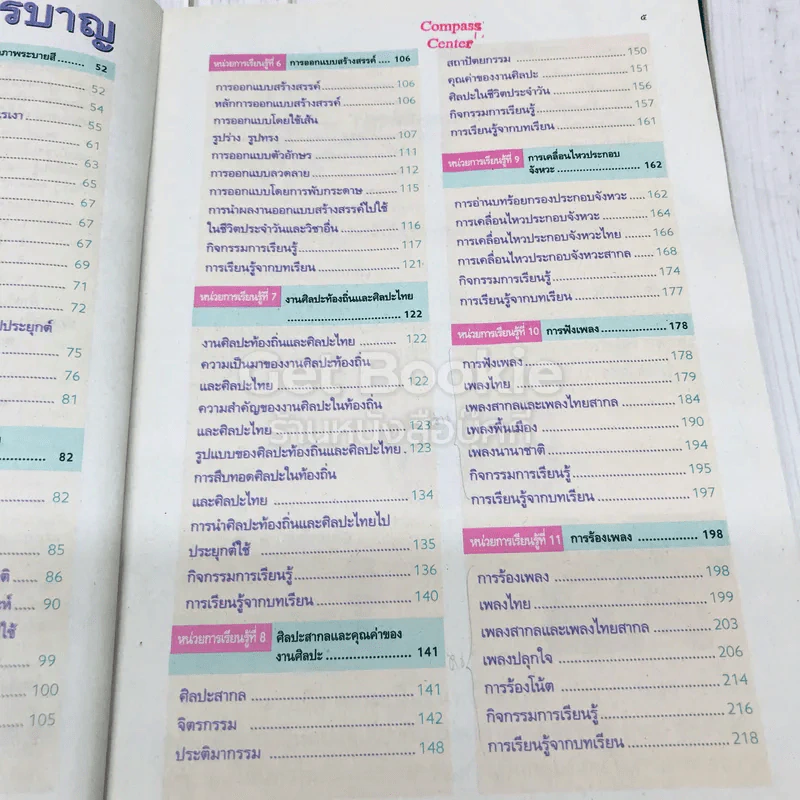 รบาญ
ภาพระบายสี ........ 52
52
54
55
61
63
65
67
67
67
69
71
72
ประยุกต์
75
76
81
82
82
85
86
90
ใช้
99
100
105
Compass
Center
๕
หน่วยการเรียนรู้ที่ 6 การออกแบบสร้างสรรค์ .... 106
การออกแบบสร้างสรรค์ ........ 106
หลักการออกแบบสร้างสรรค์ ........ 106
การออกแบบโดยใช้เส้น
รูปร่าง รูปทรง ........ 107
การออกแบบตัวอักษร ........ 111
การออกแบบลวดลาย ........ 112
การออกแบบโดยการพับกระดาษ ........ 115
การนำผลงานออกแบบสร้างสรรค์ไปใช้
ในชีวิตประจำวันและวิชาอื่น ........ 116
กิจกรรมการเรียนรู้ ........ 117
การเรียนรู้จากบทเรียน ........ 121
หน่วยการเรียนรู้ที่ 7 งานศิลปะท้องถิ่นและศิลปะไทย
........ 122
งานศิลปะท้องถิ่นและศิลปะไทย ........ 122
ความเป็นมาของงานศิลปะท้องถิ่น
และศิลปะไทย ........ 122
ความสำคัญของงานศิลปะในท้องถิ่น
และศิลปะไทย ........ 123
รูปแบบของศิลปะท้องถิ่นและศิลปะไทย . 123
การสืบทอดศิลปะในท้องถิ่น
และศิลปะไทย ........ 134
การนำศิลปะท้องถิ่นและศิลปะไทยไป
ประยุกต์ใช้ ........ 135
กิจกรรมการเรียนรู้ ........ 136
การเรียนรู้จากบทเรียน ........ 140
หน่วยการเรียนรู้ที่ 8 ศิลปะสากลและคุณค่าของ
งานศิลปะ ........ 141
ศิลปะสากล ........ 141
จิตรกรรม ........ 142
ประติมากรรม ........ 148
สถาปัตยกรรม ........ 150
คุณค่าของงานศิลปะ ........ 151
ศิลปะในชีวิตประจำวัน ........ 156
กิจกรรมการเรียนรู้ ........ 157
การเรียนรู้จากบทเรียน ........ 161
หน่วยการเรียนรู้ที่ 9 การเคลื่อนไหวประกอบ
จังหวะ ........ 162
การอ่านบทร้อยกรองประกอบจังหวะ .... 162
การเคลื่อนไหวประกอบจังหวะ ........ 164
การเคลื่อนไหวประกอบจังหวะไทย ........ 166
การเคลื่อนไหวประกอบจังหวะสากล .... 168
กิจกรรมการเรียนรู้ ........ 174
การเรียนรู้จากบทเรียน ........ 177
หน่วยการเรียนรู้ที่ 10 การฟังเพลง ........ 178
การฟังเพลง ........ 178
เพลงไทย ........ 179
เพลงสากลและเพลงไทยสากล ........ 184
เพลงพื้นเมือง ........ 190
เพลงนานาชาติ ........ 194
กิจกรรมการเรียนรู้ ........ 195
การเรียนรู้จากบทเรียน ........ 197
หน่วยการเรียนรู้ที่ 11 การร้องเพลง ........ 198
การร้องเพลง ........ 198
เพลงไทย ........ 199
เพลงสากลและเพลงไทยสากล ........ 203
เพลงปลุกใจ ........ 206
การร้องโน้ต ........ 214
กิจกรรมการเรียนรู้ ........ 216
การเรียนรู้จากบทเรียน ........ 218
Get Bookie
ร้านหนังสือบุ๊คกี้